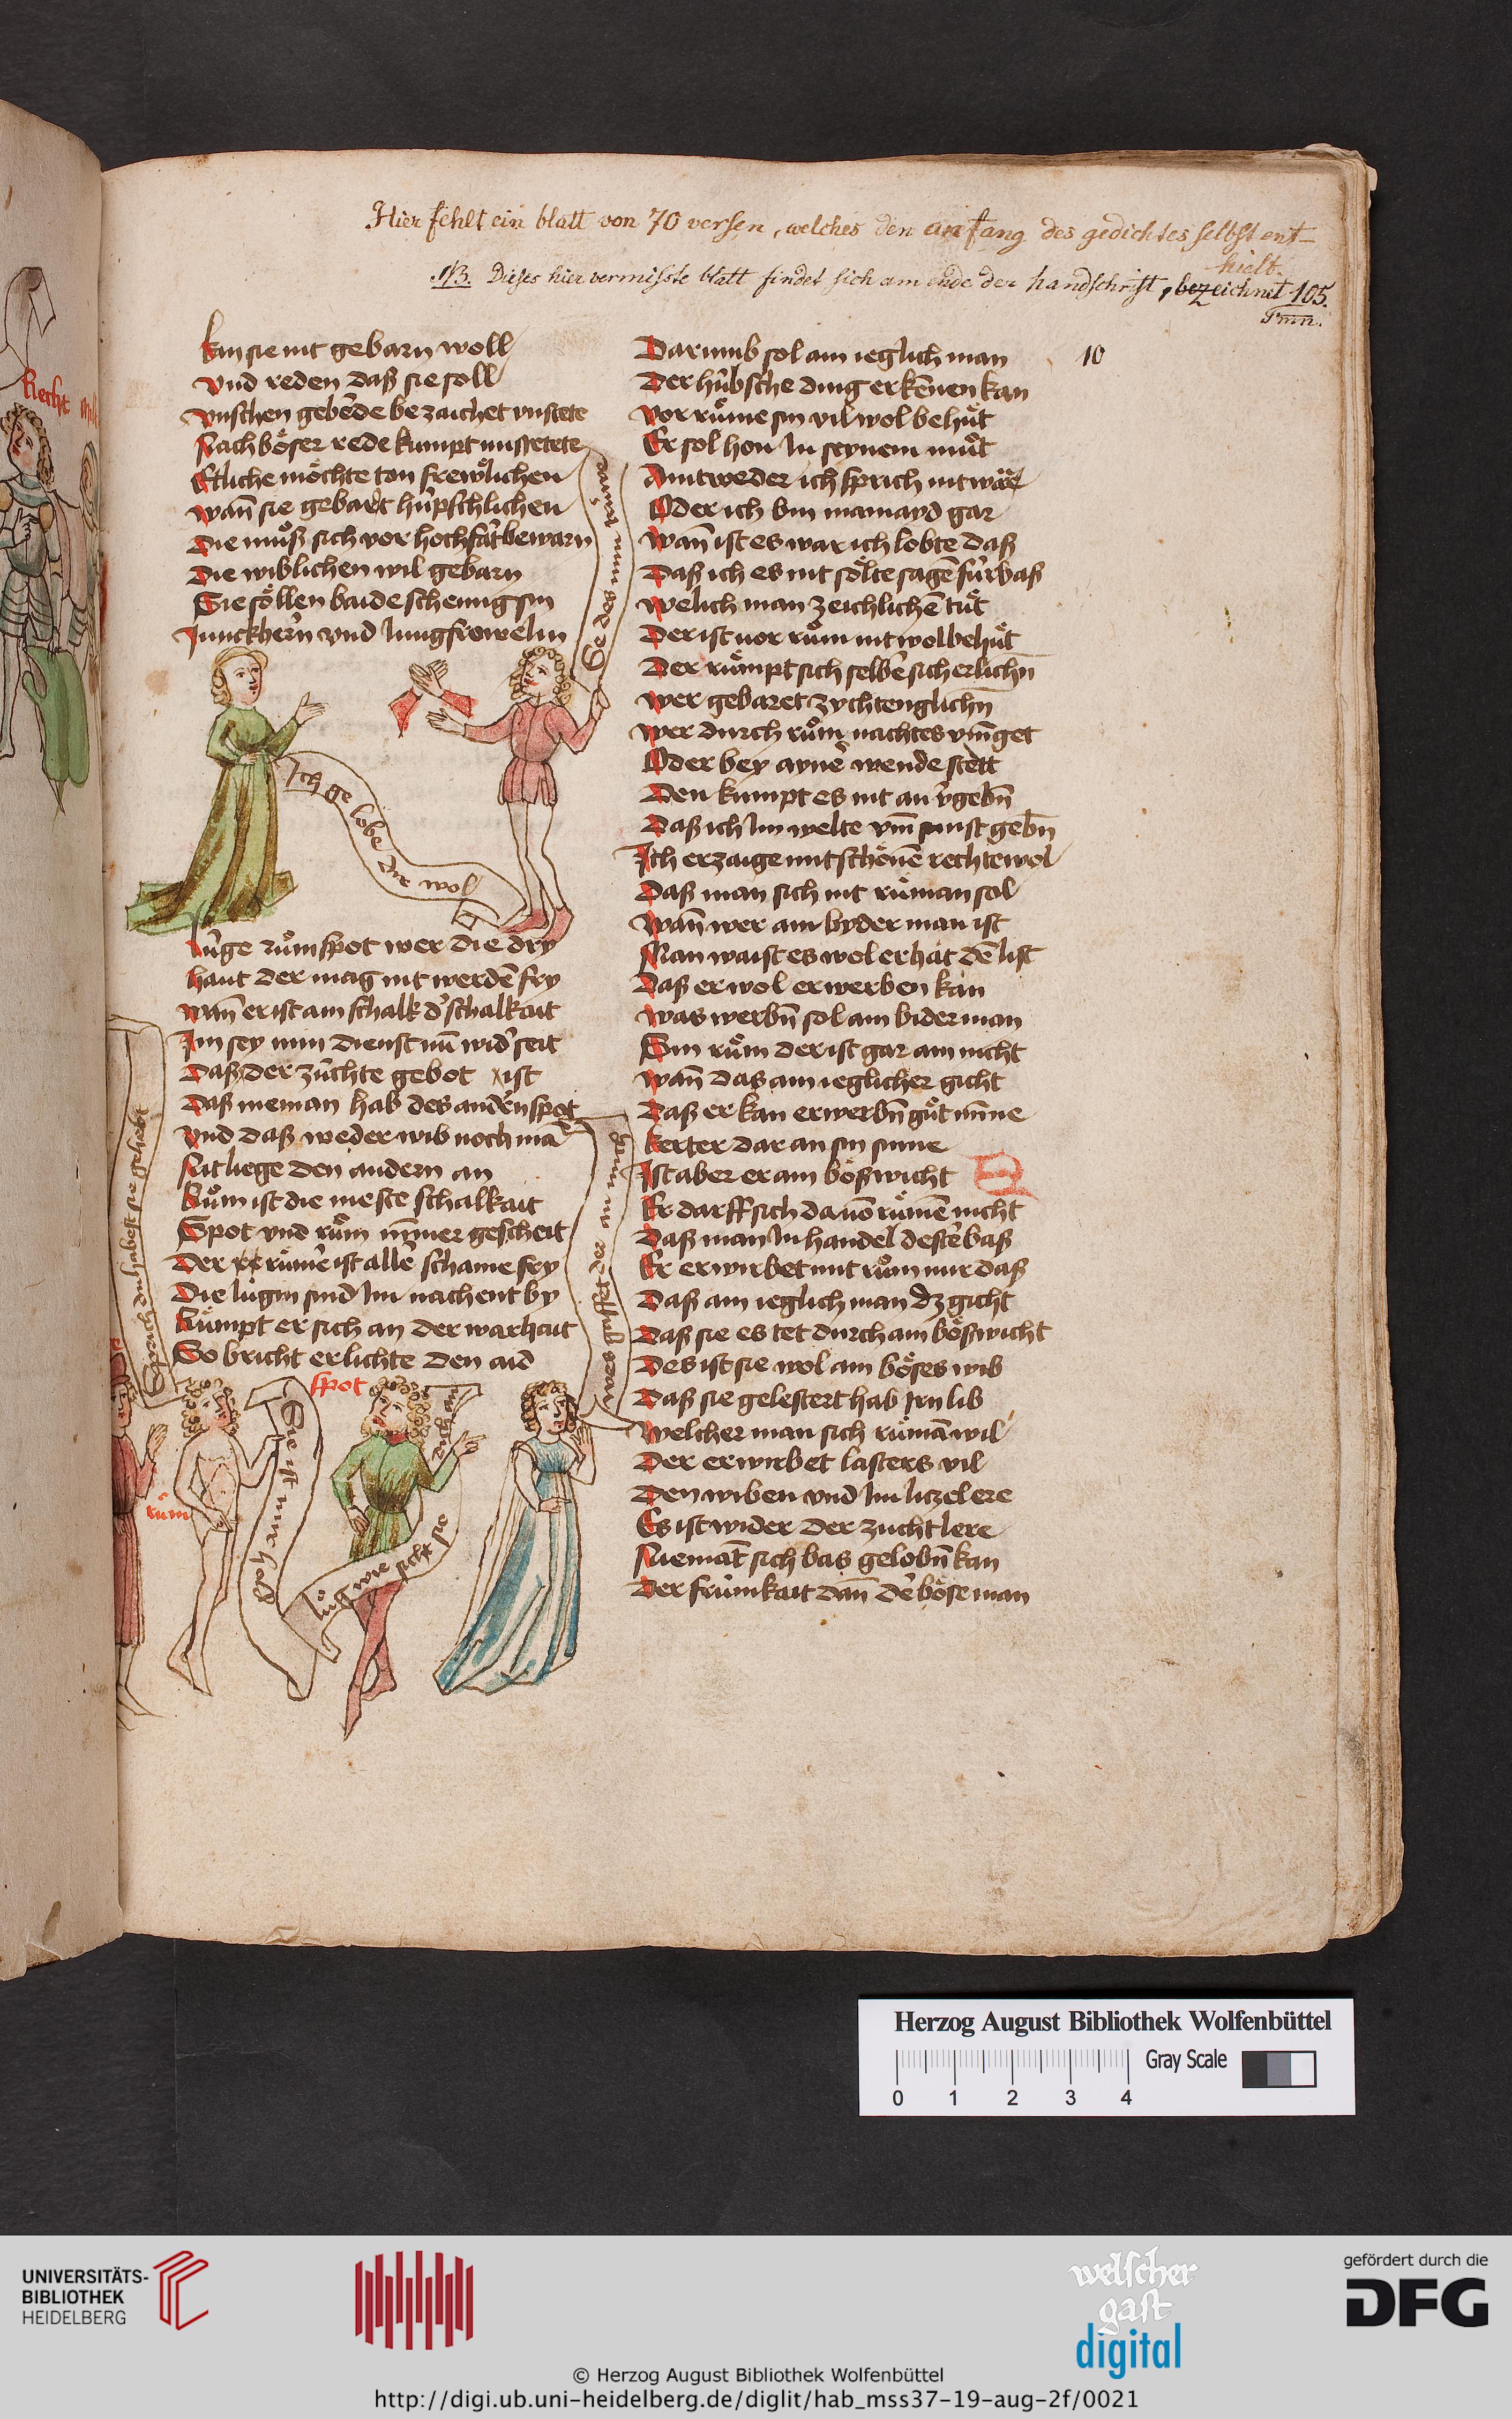 Hier fehlt ein blatt von 70 versen, welches den anfang des gedichtes selbst ent-
hielt.
NB. Dieses hier vermiſste blatt findet sich am ende der handschrift, bezeichnet 105.
10
kan sie nit gebarn woll
vnd reden daß sie soll
vnschen gebe͂de bezaichet vnstete
Nach böser rede kumpt missetete
Etliche möchte ton frewlichen
wan̄ sie gebart hüpschlichen
Die muͦß sich vor hochfart bewarn
Die wiblichen wil gebarn
Sie söllen baide scheinig sin
Junckhern vnd Jungfrowelin
Gedenck min
Ich ge lobe dir wol
Lüge ruͦm spot wer die dry
haut der mag nit werde͂ fry
wan̄ er ist ain schalk d' schalkait
Im sey min dienst nu͂ wid' seit
Daß der züchte gebot ist
Daß nieman hab des andern spot
vnd daß weder wib noch ma͂
Nit liege den andern an
Ruͦm ist die meste schalkait
Spot vnd ruͦm nȳmer gescheit
Der rümer ist aller schame fry
Die lugin sind Im nachent by
Rümpt er sich an der warhait
So bricht er lichte den aid
Sprich du habest sie gehebt
spot
ruͦm
Sie ist mir hold
lüg wie sicht sie
Darumb sol ain ieglich man
Der hübsche ding erkennen kan
vor ruͦme sin vil wol behüt
Er sol hon In seynem muͦt
Aintweder ich sprich nit war
Oder ich bin mainayd gar
wan̄ ist es war ich lobte daß
Daß ich es nit sölte sage͂ fürbaß
welich man zeichliche͂ tuͦt
Der ist vor ruͦm nit wol behüt
Der rümpt sich selber sicherlichn̄
wer gebaret zychtenglichn̄
wer durch ruͦm nachtes vm̄get
Oder bey ayne͂ wende stett
Den kumpt es nit an v'gebn̄
Daß ich Im welte vm̄ sunst gebn̄
Ich erzaige mit schöne͂ rechte wol
Daß man sich nit rüman sol
wan̄ wer ain byder man ist
Man waist es wol er hat de͂ list
Daß er wol erwerben kan
was werbn̄ sol ain biderman
Sin ruͦm der ist gar ain nicht
wan̄ das ain ieglicher gicht
Daß er kan erwerbn̄ guͦt mīne
kerter dar an sin sinne
Ist aber er ain böswicht
Er darff sich dauo͂ rüme͂ nicht
Daß man In handel dester baß
Er erwirbet mit ruͦm nur daß
Daß ain ieglich man dz gicht
Daß sie es tet durch ain böswicht
Des ist sie wol ain böses wib
Daß sie gelestert hab Irn lib
welcher man sich rüma͂ wil
Der erwirbet lasters vil
Den wiben vnd Im liczel ere
Es ist wider der zucht lere
Niemāt sich bas gelobn̄ kan
Der frümkait dan̄ de͂ böse man
Herzog August Bibliothek Wolfenbüttel
0 1 2 3 4
Gray Scale
UNIVERSITÄTS-
BIBLIOTHEK
HEIDELBERG
welscher
gast
digital
gefördert durch die
DFG
© Herzog August Bibliothek Wolfenbüttel
http://digi.ub.uni-heidelberg.de/diglit/hab_mss37-19-aug-2f/0021